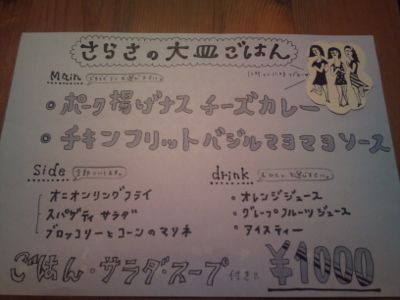 さらさの大皿ごはん
Main
◎ポーク揚げナス チーズカレー
◎チキンフリットバジルマヨマヨソース
Side
オニオンリングフライ
スパゲティ サラダ
ブロッコリーとコーンのマリネ
drink
・オレンジジュース
・グレープフルーツジュース
・アイスティー
ごはん・サラダ・スープ 付き ¥1000